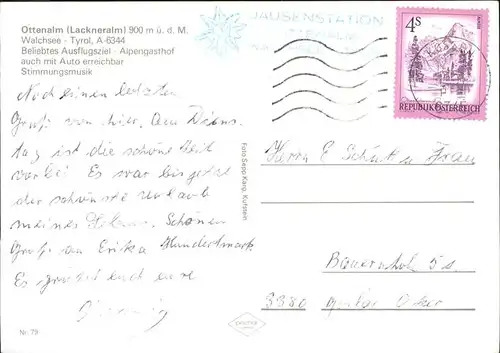 Ottenalm (Lackneralm) 900 m ü. d. M.
Walchsee - Tyrol, A-6344
Beliebtes Ausflugsziel - Alpengasthof
auch mit Auto erreichbar
Stimmungsmusik
JAUSENSTATION
4S
REPUBLIK ÖSTERREICH
Noch einen letzten
Gruß von hier. Am Diens
tag ist die schöne Zeit
vorbei Es war bis jetzt
der schönste Urlaub
meines Lebens. Schönen
Gruß an Erika Hundertmark
Es grüßt euch eure
Foto Sepp Karg, Kufstein
Herrn E Schütt u Frau
Bauernhof 5a
3380 Goslar Oker
Nr. 79